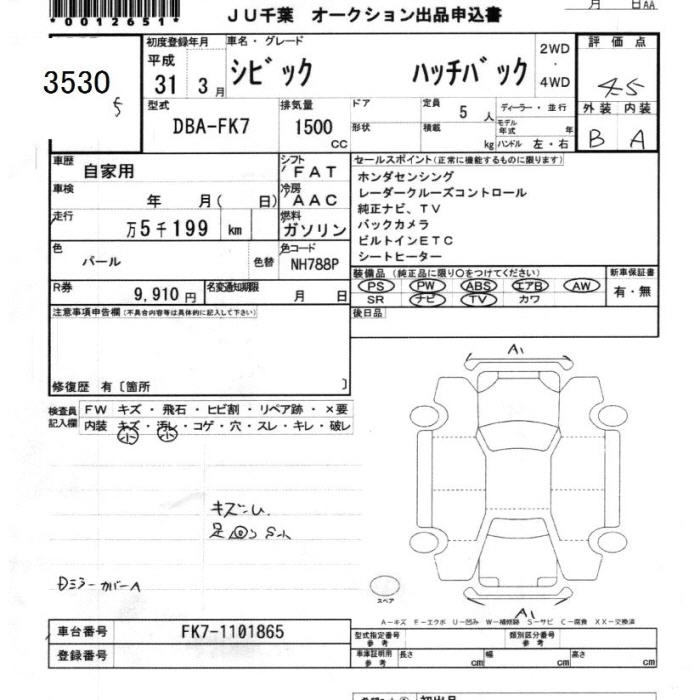 *0012651*
月 日AA
JU千葉 オークション出品申込書
3530
5
初度登録年月
平成
31 3月
車名・グレード
シビック ハッチバック
2WD
・
4WD
評価点
4.5
型式
DBA-FK7
排気量
1500
CC
ドア
形状
定員
5人
積載
kg
ディーラー・並行
モデル年式 年
ハンドル 左・右
外装 内装
B A
車歴
自家用
シフト
FAT
車検
年 月( 日)
冷房
AAC
走行
万5千199 km
燃料
ガソリン
色
パール
色替
色コード
NH788P
R券
9,910円
名変通知期限
月 日
セールスポイント(正常に機能するものに限ります)
ホンダセンシング
レーダークルーズコントロール
純正ナビ、TV
バックカメラ
ビルトインETC
シートヒーター
装備品(純正品に限り○をつけてください)
PS PW ABS エアB AW
SR ナビ TV カワ
新車保証書
有・無
後日品
注意事項申告欄(不具合内容等は具体的に記入して下さい)
修復歴 有〔箇所 〕
検査員記入欄
FW キズ・飛石・ヒビ割・リペア跡・×要
内装 キズ・汚レ・コゲ・穴・スレ・キレ・破レ
小 小
キズU.
Dミラーカバー A
A1
A1
スペア
A−キズ E−エクボ U−凹み W−補修跡 S−サビ C−腐食 XX−交換済
車台番号
FK7-1101865
登録番号
型式指定番号
参考
類別区分番号
参考
車庫証明用
参考
長さ cm
幅 cm
高さ cm